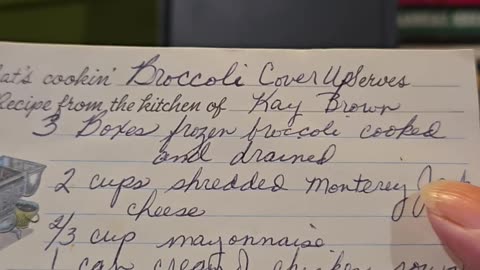 at's cookin' Broccoli Cover Up Serves
Recipe from the kitchen of Kay Brown
3 Boxes frozen broccoli cooked
and drained
2 cups shredded Monterey Jack
cheese
2/3 cup mayonnaise
1 can cream of chicken soup